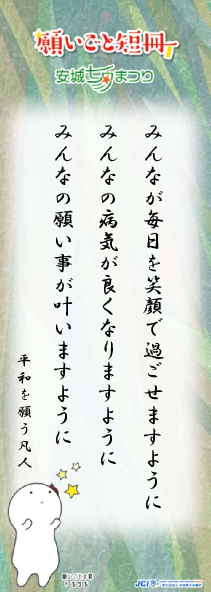 願いごと短冊
安城七夕まつり
みんなが毎日を笑顔で過ごせますように
みんなの病気が良くなりますように
みんなの願い事が叶いますように
平和を願う凡人
JCI